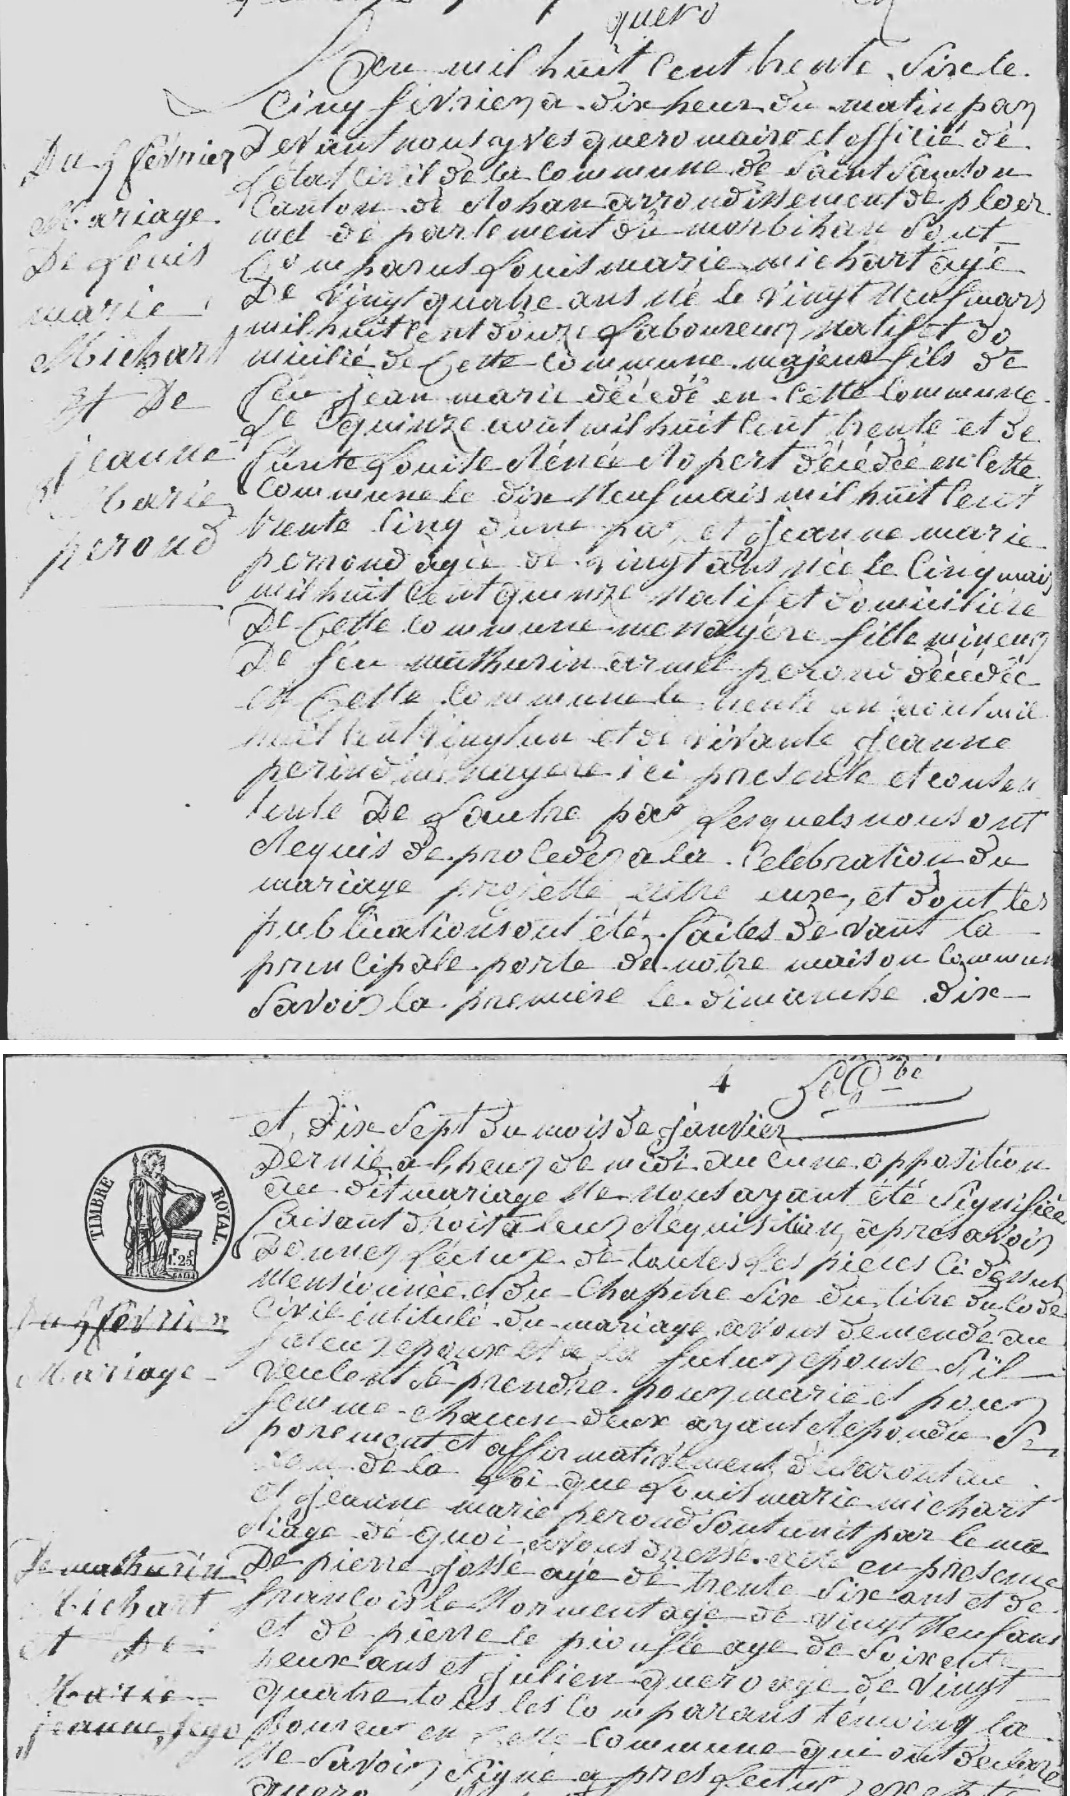 quero
L'en mil huit Cent trente Six le
Cinq fevrier a dix heur du matin par
Devant nous yves quero maire et officié dé
L'état Civil de la Commune de Saint Samson
Canton de Rohan arrondissement de ploer
mel departement du morbihan Sont
Comparus Louis marie michart agé
De Vingt quatre ans né le Vingt Neuf mars
mil huit Cent douze Laboureur Natif et do
micilié de Cette Commune majeur fils de
feu Jean marie décédé en Cette Commune
Le quinze août mil huit Cent trente et de
funte Louise Rénée Ropert décédée en Cette
Commune le dix Neuf mais mil huit Cent
trente Cinq d'une par et Jeanne marie
perond agée de Vingt ans née le Cinq mais
mil huit Cent quinze Natif et domicilière
De Cette Commune menagère fille mineur
De feu mathurin armel perond décédée
en Cette Commune le trente un août mil
huit Cent Vingt un et de vivante Jeanne
perind ménagere ici presente et consen
tente De Lautre par Lesquels nous ont
Requis de proceder a la Celebration du
mariage projetté entre eux, et dont les
publications ont été faites devant la
principale porte de notre maison Commun
Savoir la première le dimanche dix
Du 5 février
Mariage
De Louis
marie
Michart
Et De
jeanne
Marie
perond
4
et Dix Sept du mois de janvier
Dernié a L'heur de midi aucune opposition
au dit mariage Ne Nous ayant été Signifiée
faisant droit a leur Réquisition après avoir
Donner Lecture de toutes Les pieces Ci dessus
Mensionnée et du Chapitre Six du titre du Code
Civil intitulé du mariage avons demende au
futeur epoux et a la futur epouse S'il
veulent Se prendre pour marie et pour
femme chacun deux ayant Repondu Se
parement et affirmativement déclaront au
Nom de la Loi que Louis marie michart
et Jeanne marie perond Sont unit par le ma
riage de quoi avons dresse acte en presence
De pierre Josse agé de trente Six ans et de
francois le Norment age de Vingt Neuf ans
et de pierre le piouffle age de Soixente
Deux ans et julien quero agé de Vingt
quatre tous les Comparans témoing la
boureur en Cette Commune qui ont déclaré
Ne Savoir Signe apres Lectur excepte
quero
TIMBRE ROYAL
1.25
Du 5 février
Mariage
De mathurin
Michart
et De
Marie
Jeanne Jego